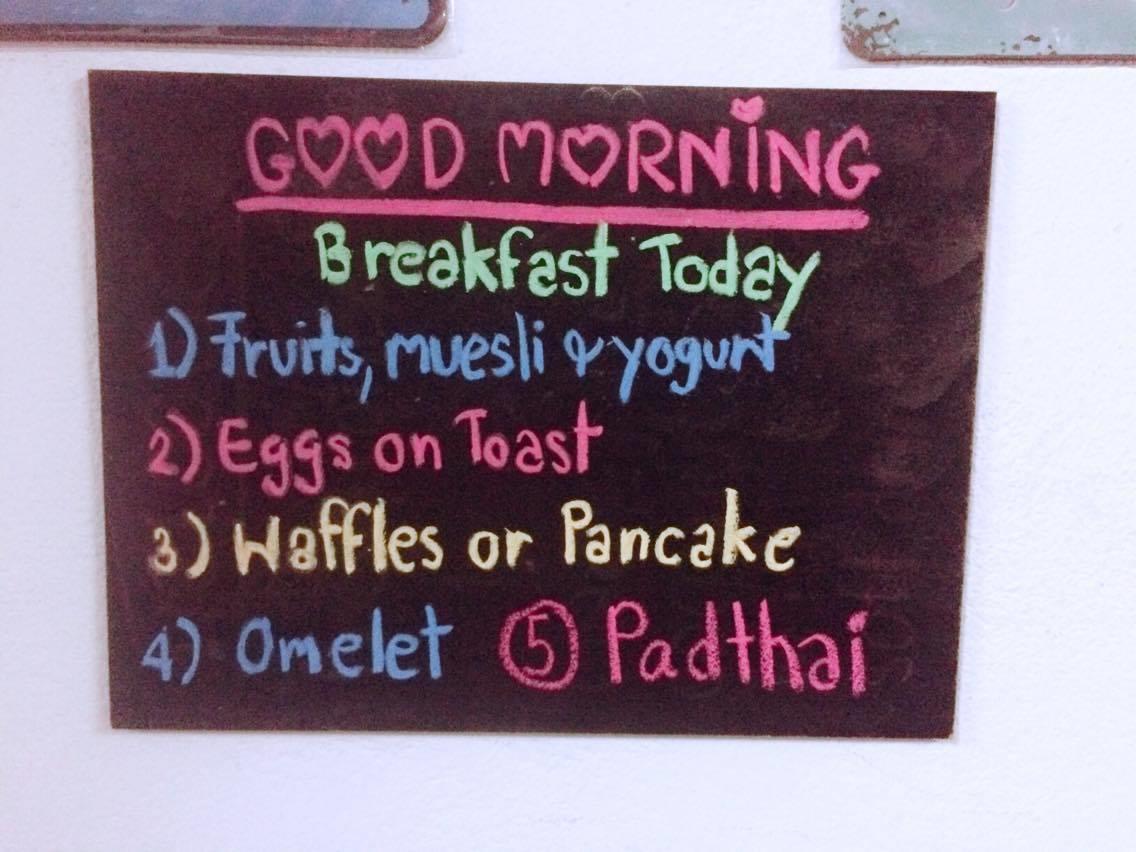 GOOD MORNING
Breakfast Today
1) Fruits, muesli & yogurt
2) Eggs on Toast
3) Waffles or Pancake
4) Omelet ⑤ Padthai